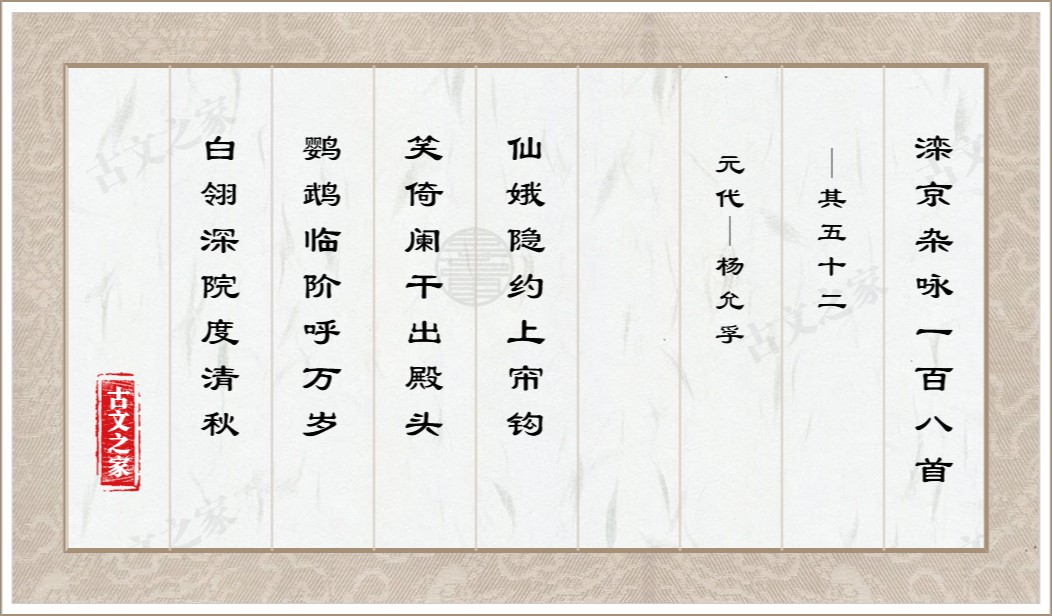 滦京杂咏一百八首
—其五十二
元代—杨允孚
仙娥隐约上帘钩
笑倚阑干出殿头
鹦鹉临阶呼万岁
白翎深院度清秋
古文之家
古文之家
古文之家
古文之家